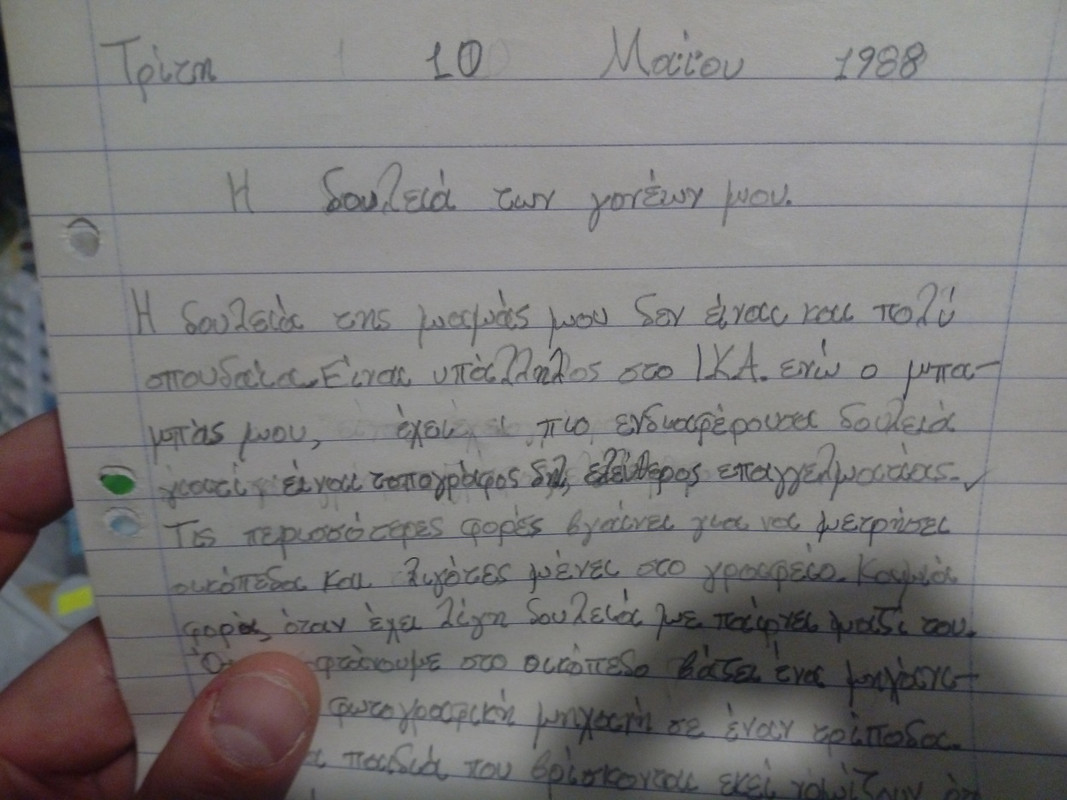 Τρίτη 10 Μαΐου 1988
Η δουλειά των γονέων μου.
Η δουλειά της μαμάς μου δεν είναι και πολύ
σπουδαία. Είναι υπάλληλος στο Ι.Κ.Α. ενώ ο μπα-
μπάς μου, έχει πιο ενδιαφέρουσα δουλειά
γιατί είναι τοπογράφος δηλ. ελεύθερος επαγγελματίας.
Τις περισσότερες φορές βγαίνει για να μετρήσει
οικόπεδα και λιγότες μένει στο γραφείο. Καμμιά
φορά, όταν έχει λίγη δουλειά με παίρνει μαζί του.
φτάνουμε στο οικόπεδο βάζει ένα μηχάνη-
φωτογραφική μηχανή σε έναν τρίποδα.
παιδιά που βρίσκονται εκεί νομίζουν ότι